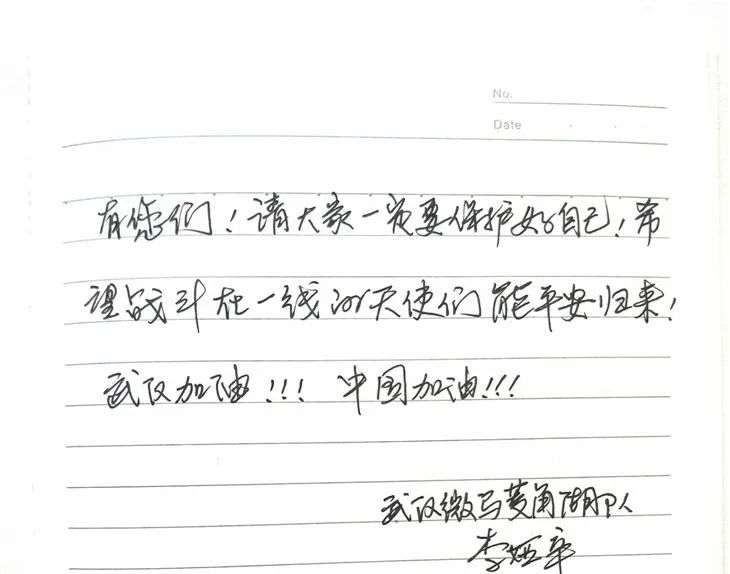 No.
Date
有您们！请大家一定要保护好自己！希
望战斗在一线的天使们能平安归来！
武汉加油！！！ 中国加油！！！
武汉微马菱角湖PM人
李娅辛